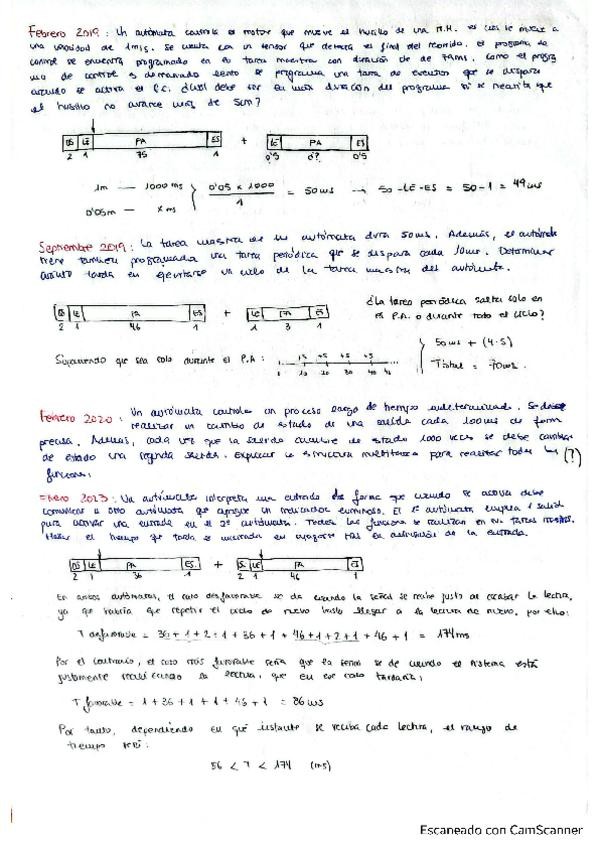 Febrero 2019: Un autómata controla el motor que mueve el husillo de una M.H. el cual se mueve a
una velocidad de 1m/s. Se cuenta con un sensor que detecta el final del recorrido. El programa de
control se encuentra programado en su tarea maestra con duración de 79ms. Como el progra
ma de control es demasiado lento se programa una tarea de eventos que se dispara
cuando se activa el f.c. ¿Cuál debe ser la máx duración del programa si se necesita que
el husillo no avance más de 5cm?
OS LE PA ES + LE PA ES
2 1 75 1 0'5 0? 0'5
1m — 1000 ms
0'05m — x ms
0'05 x 1000 / 1 = 50ms → 50-LE-ES = 50-1 = 49ms
Septiembre 2019: La tarea maestra de un autómata dura 50ms. Además, el autómata
tiene también programada una tarea periódica que se dispara cada 10ms. Determinar
cuánto tarda en ejecutarse un ciclo de la tarea maestra del autómata.
OS LE PA ES + LE PA ES
2 1 46 1 1 3 1
¿La tarea periódica salta solo en
el P.A. o durante todo el ciclo?
Suponiendo que sea solo durante el P.A:
+5 +5 +5 +5
1 10 20 30 40
50ms + (4·5)
Ttotal = 70ms.
Febrero 2020: Un autómata controla un proceso largo de tiempo indeterminado. Se desea
realizar un cambio de estado de una salida cada 100ms de forma
precisa. Además, cada vez que la salida cambie de estado 1000 veces se debe cambiar
de estado una segunda salida. Explicar la estructura multitarea para realizar todas las (?)
funciones.
Enero 2023: Un autómata interpreta una entrada de forma que cuando se activa debe
comunicar a otro autómata que apague un indicador luminoso. El 1º autómata emplea 1 salida
para activar una entrada en el 2º autómata. Todas las funciones se realizan en su tarea maestra.
Hallar el tiempo que tarda el indicador en apagarse tras la activación de la entrada.
OS LE PA ES + OS LE PA ES
2 1 36 1 2 1 46 1
En ambos autómatas, el caso desfavorable se da cuando la señal se recibe justo al acabar la lectura,
ya que habría que repetir el ciclo de nuevo hasta llegar a la lectura de nuevo, por ello:
T desfavorable = 36+1+2+1+36+1+46+1+2+1+46+1 = 174ms
Por el contrario, el caso más favorable sería que la señal se dé cuando el sistema está
justamente realizando la lectura, que en ese caso tardaría:
T favorable = 1+36+1+1+46+1 = 86ms
Por tanto, dependiendo en qué instante se reciba cada lectura, el rango de
tiempo será:
56 < T < 174 (ms)
Escaneado con CamScanner